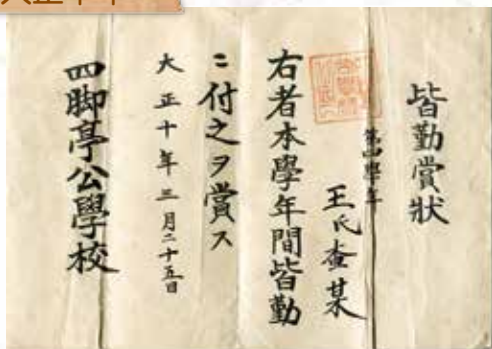 皆勤賞狀
第四學年
王氏查某
右者本學年間皆勤
ニ付之ヲ賞ス
大正十年三月二十五日
四脚亭公學校